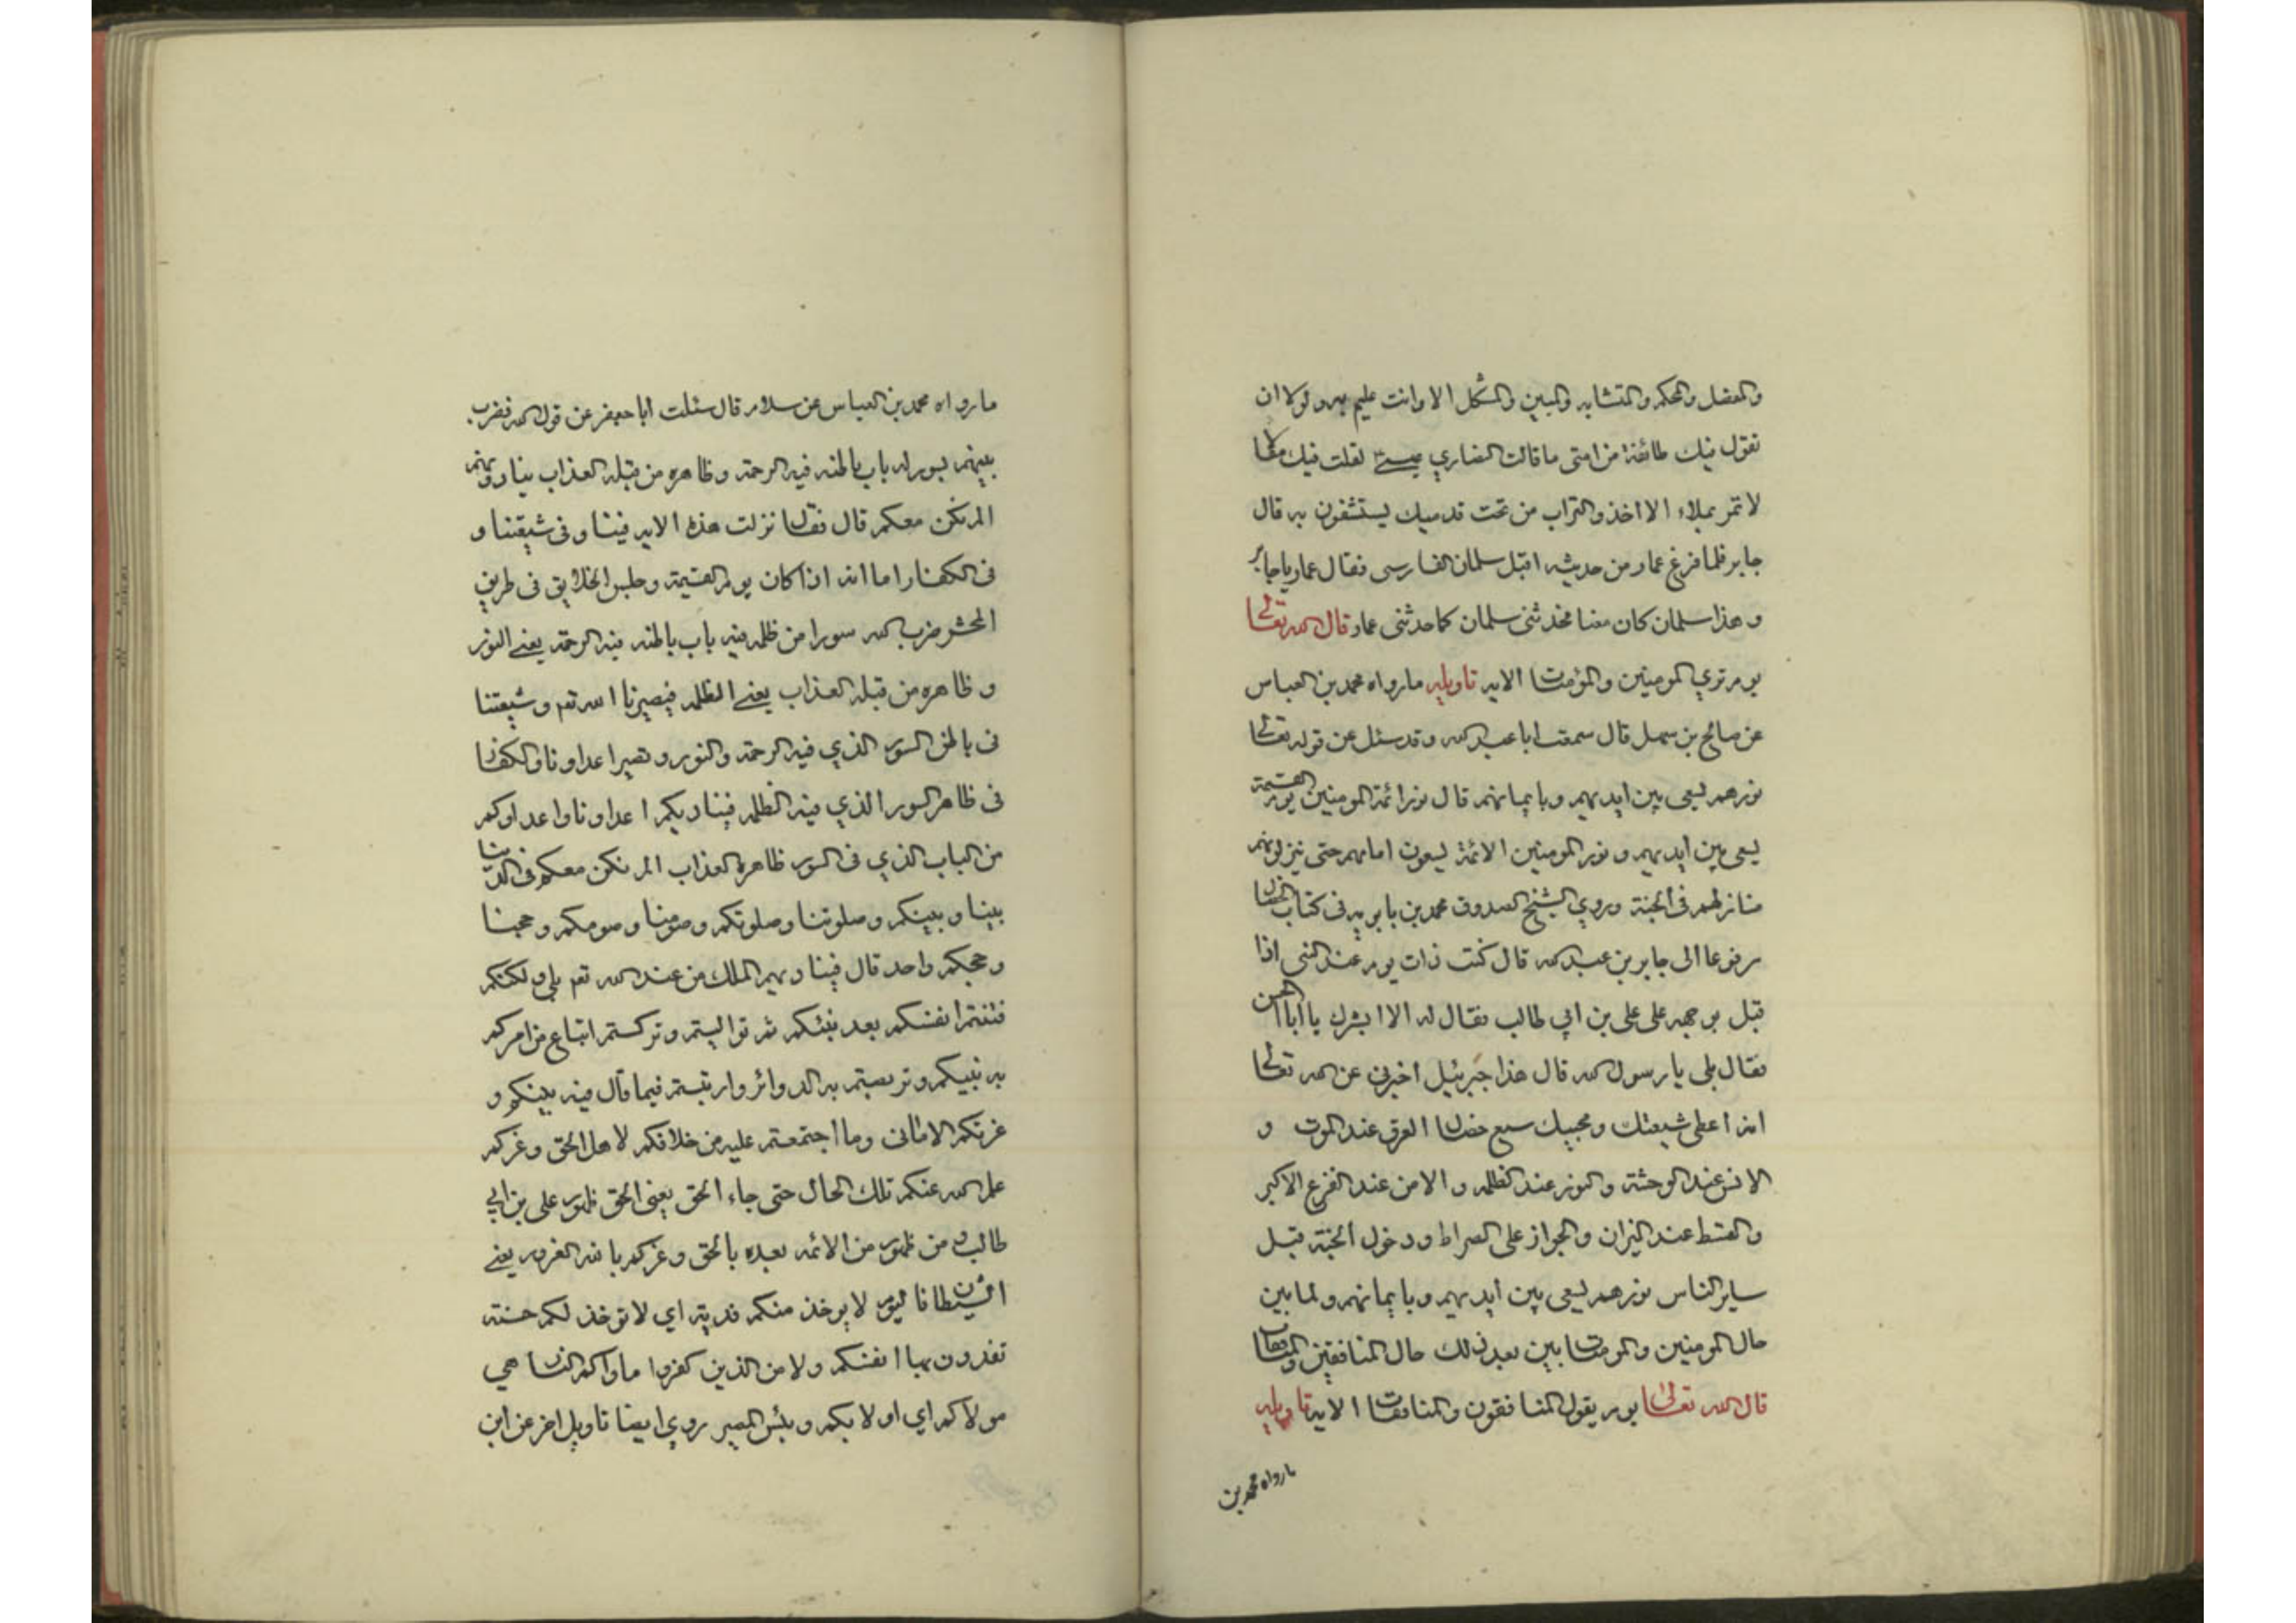 والمفصل والمحكم والمتشابه والمبين والمشكل الا وانت عليم به ولولا ان
تقول فيك طائفة من امتى ما قالت النصارى عيسى لقلت فيك مقالا
لا تمر بملاء الا اخذوا التراب من تحت قدميك يستشفون به قال
جابر فلما فرغ عمار من حديثه اقبل سلمان الفارسى فقال عمار يا جابر
وهذا سلمان كان معنا فحدثنى سلمان كما حدثنى عمار قال الله تعالى
يوم ترى المومنين والمؤمنات الايه تاويله ما رواه محمد بن العباس
عن صالح بن سهل قال سمعت ابا عبد الله وقد سئل عن قوله تعالى
نورهم يسعى بين ايديهم وبايمانهم قال نور ائمة المومنين يوم القيمة
يسعى بين ايديهم ونور المومنين الائمة يسعون امامهم حتى ينزلونهم
منازلهم فى الجنة وروى الشيخ الصدوق محمد بن بابويه فى كتاب الخصال
مرفوعا الى جابر بن عبد الله قال كنت ذات يوم عند النبى اذا
قبل بوجهه على على بن ابى طالب فقال له الا ابشرك يا ابا الحسن
فقال بلى يا رسول الله قال هذا جبرئيل اخبرنى عن الله تعالى
انه اعطى شيعتك ومحبيك سبع خصال العرق عند الموت و
الانس عند الوحشة والنور عند الظلمه والامن عند الفزع الاكبر
والقسط عند الميزان والجواز على الصراط ودخول الجنة قبل
ساير الناس نورهم يسعى بين ايديهم وبايمانهم ولما بين
حال المومنين والمومنات بين بعد ذلك حال المنافقين والمنافقات
قال الله تعالى يوم يقول المنافقون والمنافقات الايه تاويله
ما رواه محمد بن
ما رواه محمد بن العباس عن سلام قال سئلت ابا جعفر عن قول الله فضرب
بينهم بسور له باب باطنه فيه الرحمة وظاهره من قبله العذاب ينادونهم
الم نكن معكم قال فقال نزلت هذه الايه فينا وفى شيعتنا و
فى الكفار اما انه اذا كان يوم القيمة وحبس الخلايق فى طريق
المحشر ضرب الله سورا من ظلمه فيه باب باطنه فيه الرحمة يعنى النور
وظاهره من قبله العذاب يعنى الظلمه فيصيرنا الله تعم وشيعتنا
فى باطن السور الذى فيه الرحمة والنور ويصير اعداونا والكفار
فى ظاهر السور الذى فيه الظلمه فيناديكم اعداونا واعداوكم
من الباب الذى فى السور ظاهره العذاب الم نكن معكم فى الدنيا
نبينا ونبيكم وصلوتنا وصلوتكم وصومنا وصومكم وحجنا
وحجكم واحد قال فيناديهم الملك من عند الله تعم بلى ولكنكم
فتنتم انفسكم بعد نبيكم ثم توليتم وتركتم اتباع من امركم
به نبيكم وتربصتم به الدوائر وارتبتم فيما قال فيه نبيكم و
غرتكم الامانى وما اجتمعتم عليه من خلافكم لاهل الحق وغركم
حلم الله عنكم تلك الحال حتى جاء الحق يعنى الحق ظهور على بن ابى
طالب ومن ظهور من الائمه بعده بالحق وغركم بالله الغرور يعنى
الشيطان فاليوم لا يوخذ منكم فدية اى لا توخذ لكم حسنة
تفدون بها انفسكم ولا من الذين كفروا ماواكم النار هى
مولاكم اى اولا بكم وبئس المصير روى ايضا تاويل اخر عن ابن